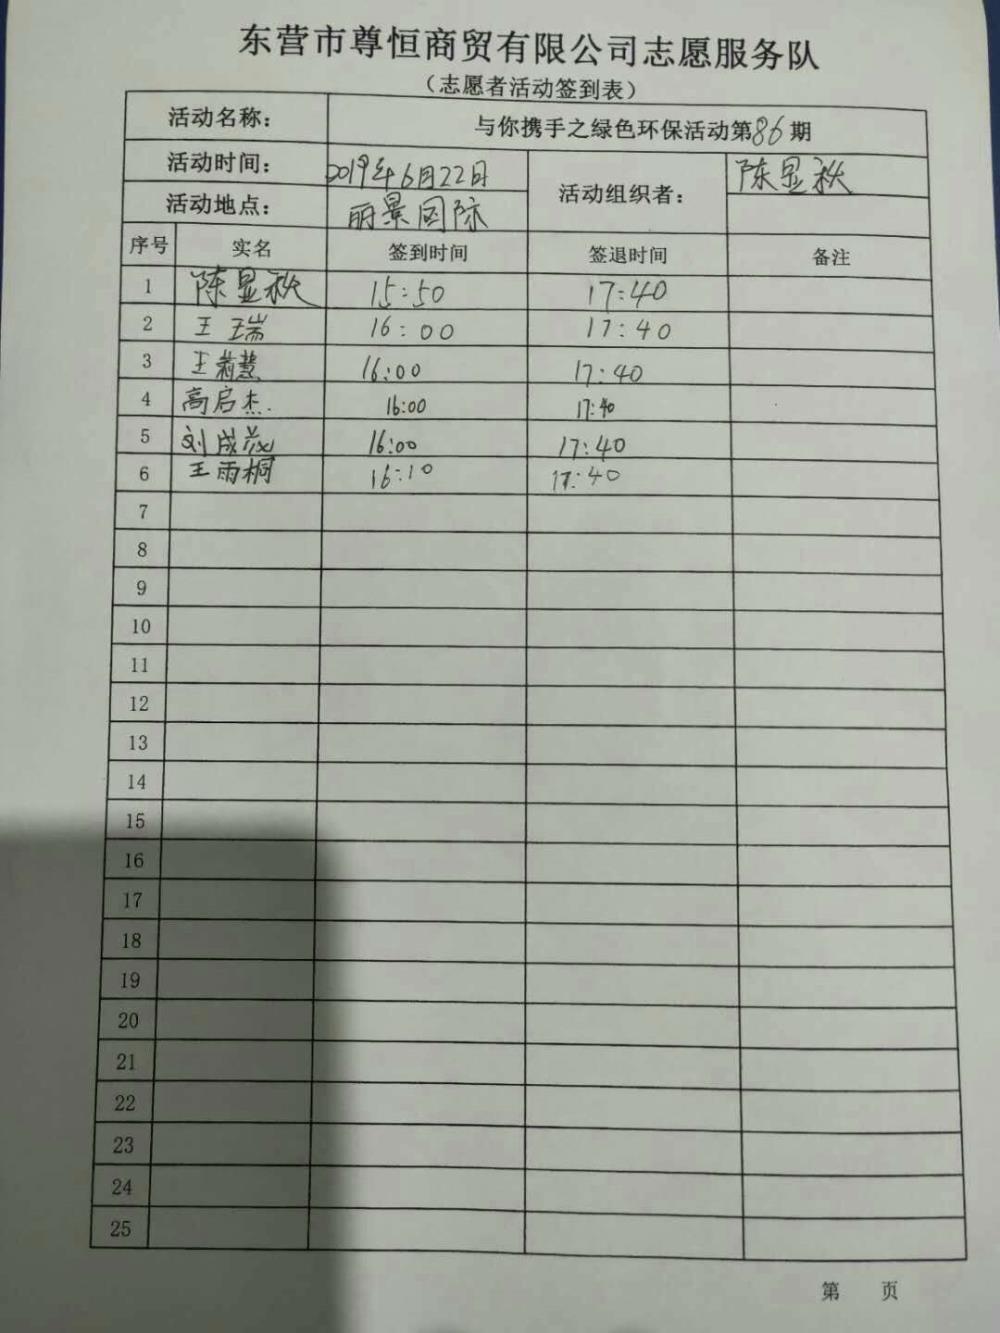 东营市尊恒商贸有限公司志愿服务队
（志愿者活动签到表）
活动名称： 与你携手之绿色环保活动第86期
活动时间： 2019年6月22日 活动组织者： 陈显秋
活动地点： 丽景国际
序号 实名 签到时间 签退时间 备注
1 陈显秋 15:50 17:40
2 王瑞 16:00 17:40
3 王莉慧 16:00 17:40
4 高启杰 16:00 17:40
5 刘成茂 16:00 17:40
6 王雨桐 16:10 17:40
7
8
9
10
11
12
13
14
15
16
17
18
19
20
21
22
23
24
25
第 页